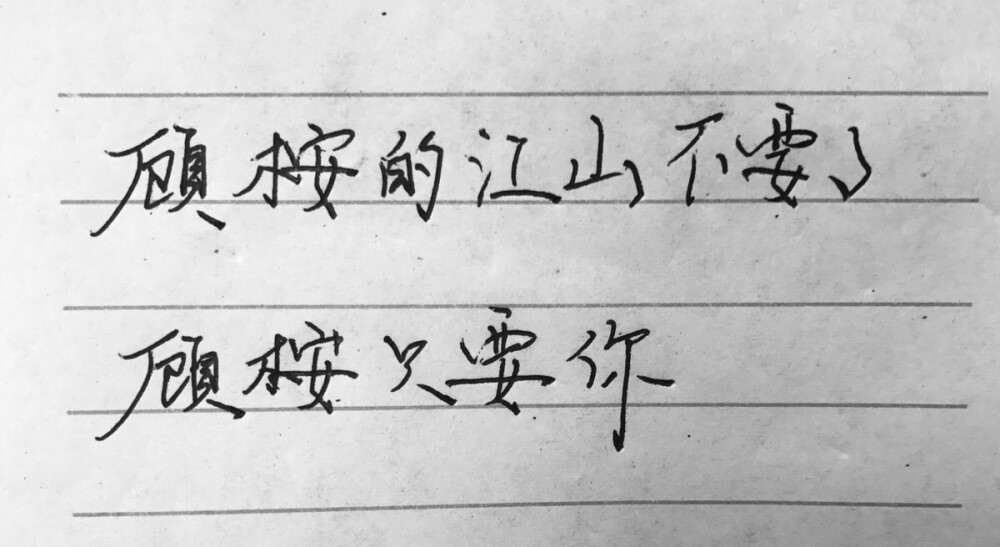 顾桉的江山不要了
顾桉只要你